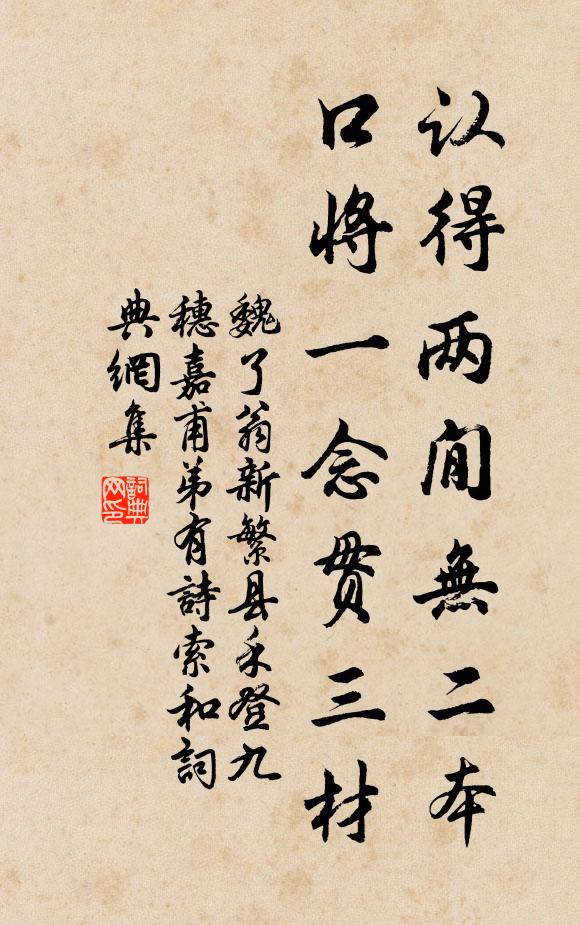 认得两间無二本
口将一念贯三材
魏了翁新繁县禾登九
穗嘉甫弟有詩索和詞
典網集
詞典网印